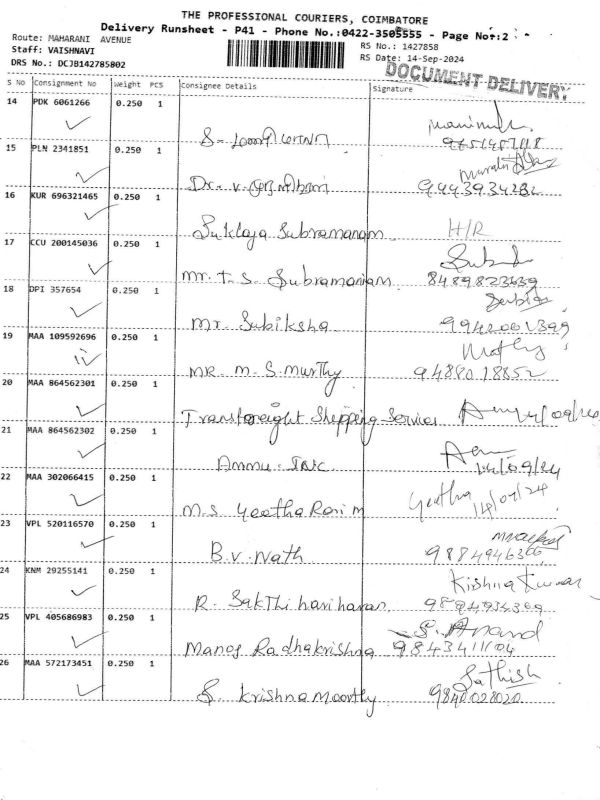 THE PROFESSIONAL COURIERS, COIMBATORE
Delivery Runsheet - P41 - Phone No.:0422-3505555 - Page No:2
Route: MAHARANI AVENUE
RS No.: 1427858
Staff: VAISHNAVI
RS Date: 14-Sep-2024
DRS No.: DCJB142785802
DOCUMENT DELIVERY
S No Consignment No Weight PCS Consignee Details Signature
14 PDK 6061266 0.250 1
S.
15 PLN 2341851 0.250 1
Dr. V.
16 KUR 696321465 0.250 1
Subramanam H/R
17 CCU 200145036 0.250 1
Mr. T. S. Subramaniam 8489823639
18 DPI 357654 0.250 1
Mr. Subiksha
19 MAA 109592696 0.250 1
MR. M. S. Murthy 9488018852
20 MAA 864562301 0.250 1
Transfreight Shipping Services
21 MAA 864562302 0.250 1
Ammu. 14/09/24
22 MAA 302066415 0.250 1
M.S. Geetha Rani M Geetha
23 VPL 520116570 0.250 1
B.V. Nath
24 KNM 29255141 0.250 1 Kishna Kumar
R. Sakthi hariharan
25 VPL 405686983 0.250 1 S. Anand
Manoj Radhakrishna
26 MAA 572173451 0.250 1 Sathish
S. Krishnamoorthy 9840028020